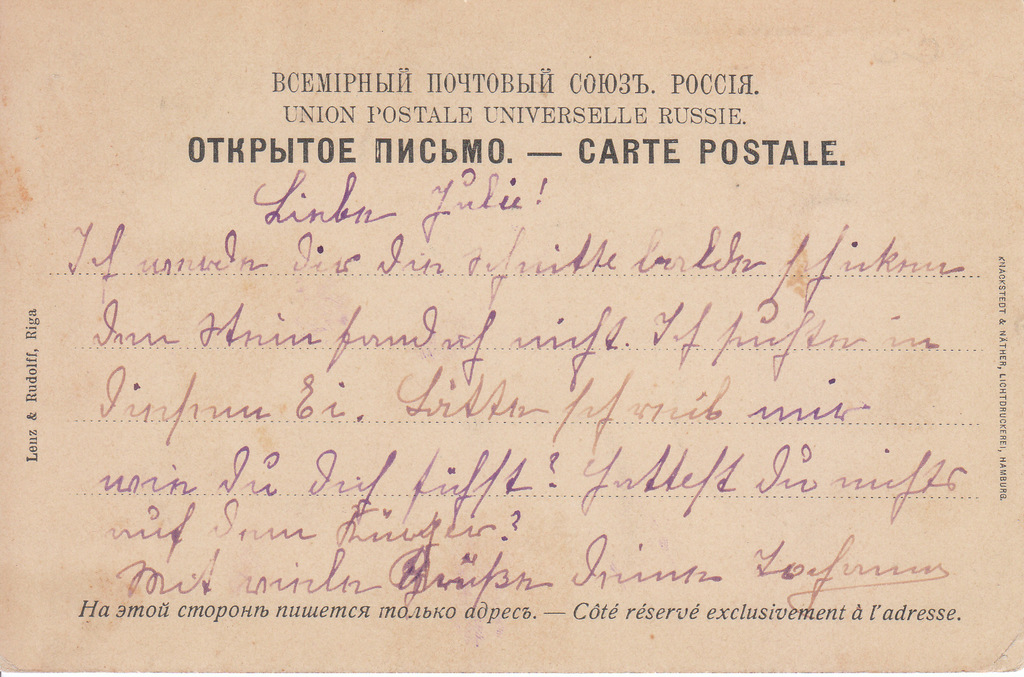 ВСЕМІРНЫЙ ПОЧТОВЫЙ СОЮЗЪ. РОССІЯ.
UNION POSTALE UNIVERSELLE RUSSIE.
ОТКРЫТОЕ ПИСЬМО. — CARTE POSTALE.
Liebe Julie!
Ich werde dir die schnitte balde schiken
den stein fand ich nicht. Ich suchte in
diesem Ei. Bitte schreib mir
wie du dich fühst? Hattest du nichts
auf dem
Mit viele Grüße deine Johanna
На этой сторонѣ пишется только адресъ. — Côté réservé exclusivement à l'adresse.
Lenz & Rudolff, Riga
KNACKSTEDT & NÄTHER, LICHTDRUCKEREI, HAMBURG.